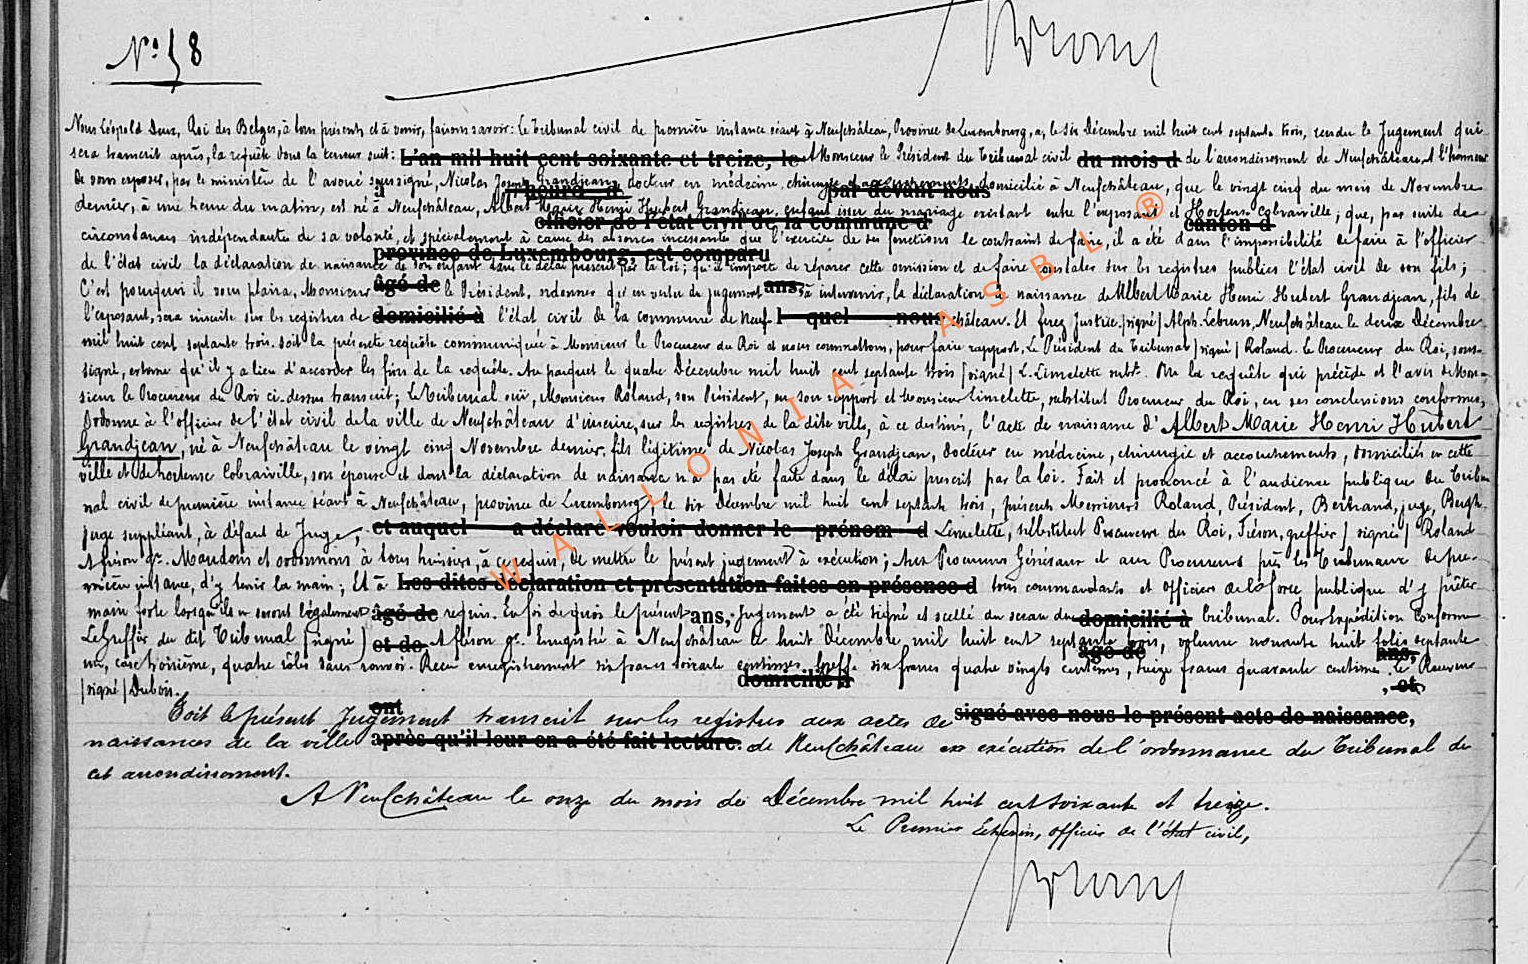 N° 58
Nous Léopold Deux, Roi des Belges, à tous présents et à venir, faisons savoir: Le Tribunal civil de première instance séant à Neufchâteau, Province de Luxembourg, a, le dix Décembre mil huit cent septante trois, rendu le Jugement qui
sera transcrit après, la requête dont la teneur suit: L'an mil huit cent soixante et treize, le A Monsieur le Président du Tribunal civil du mois d de l'arrondissement de Neufchâteau A l'honneur
de vous exposer, par le ministère de l'avoué soussigné, Nicolas Joseph Grandjean, docteur en médecine, chirurgie et accouchements, domicilié à Neufchâteau, que le vingt cinq du mois de Novembre
à heure d par devant nous
dernier, à une heure du matin, est né à Neufchâteau, Albert Marie Henri Hubert Grandjean, enfant issu du mariage existant entre l'exposant et Hortense Cobraiville; que, par suite de
officier de l'état civil de la commune d canton d
circonstances indépendantes de sa volonté, et spécialement à cause des absences incessantes que l'exercice de ses fonctions le contraint de faire, il a été dans l'impossibilité de faire à l'officier
province de Luxembourg, est comparu
de l'état civil la déclaration de naissance de son enfant dans le délai prescrit par la loi; qu'il importe de réparer cette omission et de faire constater sur les registres publics l'état civil de son fils;
C'est pourquoi il vous plaira, Monsieur âgé de le Président, ordonner qu'en vertu du jugement ans, à intervenir, la déclaration de naissance de Albert Marie Henri Hubert Grandjean, fils de
l'exposant, sera inscrite sur les registres de domicilié à l'état civil de la commune de Neuf- l quel nous château. Et ferez Justice. /signé/ Alph. Lebrun, Neufchâteau le deux Décembre
mil huit cent septante trois. Soit la présente requête communiquée à Monsieur le Procureur du Roi et nous commettons, pour faire rapport, Le Président du Tribunal /signé/ Roland. Le Procureur du Roi, sous-
signé, estime qu'il y a lieu d'accorder les fins de la requête. Au parquet le quatre Décembre mil huit cent septante trois /signé/ L. Limelette subt. Vu la requête qui précède et l'avis de Mon-
sieur le Procureur du Roi ci-dessus transcrit; Le Tribunal ouï, Monsieur Roland, son Président, en son rapport et Monsieur Limelette, substitut Procureur du Roi, en ses conclusions conformes,
Ordonne à l'officier de l'état civil de la ville de Neufchâteau d'inscrire, sur les registres de la dite ville, à ce destinés, l'acte de naissance d'Albert Marie Henri Hubert
Grandjean, né à Neufchâteau le vingt cinq Novembre dernier, fils légitime de Nicolas Joseph Grandjean, docteur en médecine, chirurgie et accouchements, domiciliés en cette
ville et de hortense Cobraiville, son épouse et dont la déclaration de naissance n'a pas été faite dans le délai prescrit par la loi. Fait et prononcé à l'audience publique du Tribu-
nal civil de première instance séant à Neufchâteau, province de Luxembourg, le dix Décembre mil huit cent septante trois, présents Messieurs Roland, Président, Bertrand, juge, Bergh,
juge suppléant, à défaut de Juge, et auquel a déclaré vouloir donner le prénom d Limelette, substitut Procureur du Roi, greffier /signés/ Roland
gr. Mandons et ordonnons à tous huissiers, à ce requis, de mettre le présent jugement à exécution; Aux Procureurs Généraux et aux Procureurs près les Tribunaux de pre-
mière instance, d'y tenir la main; Et à Les dites déclaration et présentation faites en présence d tous commandants et officiers de la force publique d'y prêter
main forte lorsqu'ils en seront légalement âgé de requis. En foi de quoi le présent ans, jugement a été signé et scellé du sceau du domicilié à Tribunal. Pour expédition conforme
Le Greffier du dit Tribunal (signé) et de gr. Enregistré à Neufchâteau le huit Décembre mil huit cent septante trois, volume huit folio septante
âgé de ans,
un, case troisième, quatre rôles sans renvoi. Reçu enregistrement six francs soixante centimes, Greffe six francs quatre vingts centimes, treize francs quarante centimes. Le Receveur
domicilié à , et
/signé/ Dubois.
ont
Soit le présent Jugement transcrit sur les registres aux actes de signé avec nous le présent acte de naissance,
naissances de la ville après qu'il leur en a été fait lecture. de Neufchâteau en exécution de l'ordonnance du Tribunal de
cet arrondissement.
A Neufchâteau le onze du mois de Décembre mil huit cent soixante et treize.
Le Premier Echevin, officier de l'état civil,
WALLONIA ASBL ®